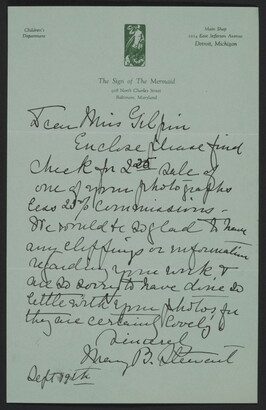 Children's
Department
Main Shop
East Jefferson Avenue
Detroit, Michigan
The Sign of The Mermaid
North Charles Street
Baltimore, Maryland
Dear Miss Gilpin
Enclose please find
check for 2 sale of
one of your photographs
less 20% commissions -
We would be so glad to have
any clippings or information
regarding your work &
are so sorry to have done so
little with your photos, for
they are certainly lovely
Sincerely
Mary B. Stewart
Sept